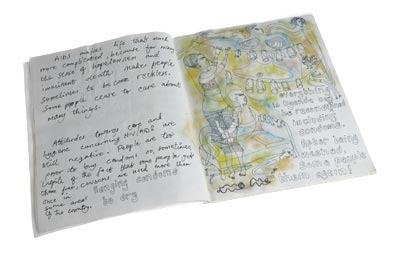 AIDS makes life that much
more complicated, because for many
the sense of hopelessness and
imminent death makes people
sometimes to become reckless.
Some people cease to care about
many things.
Attitudes towards care and
hygiene concerning HIV/AIDS are
still negative. People are too
poor to buy condoms or sometimes
inspite of the fact that some people get
them free, condoms are used more than
once in
some areas
of the country.
Hanging condoms
to dry
everything
in Uganda can
be recycled
including
condoms.
After being
washed,
some people
them again!